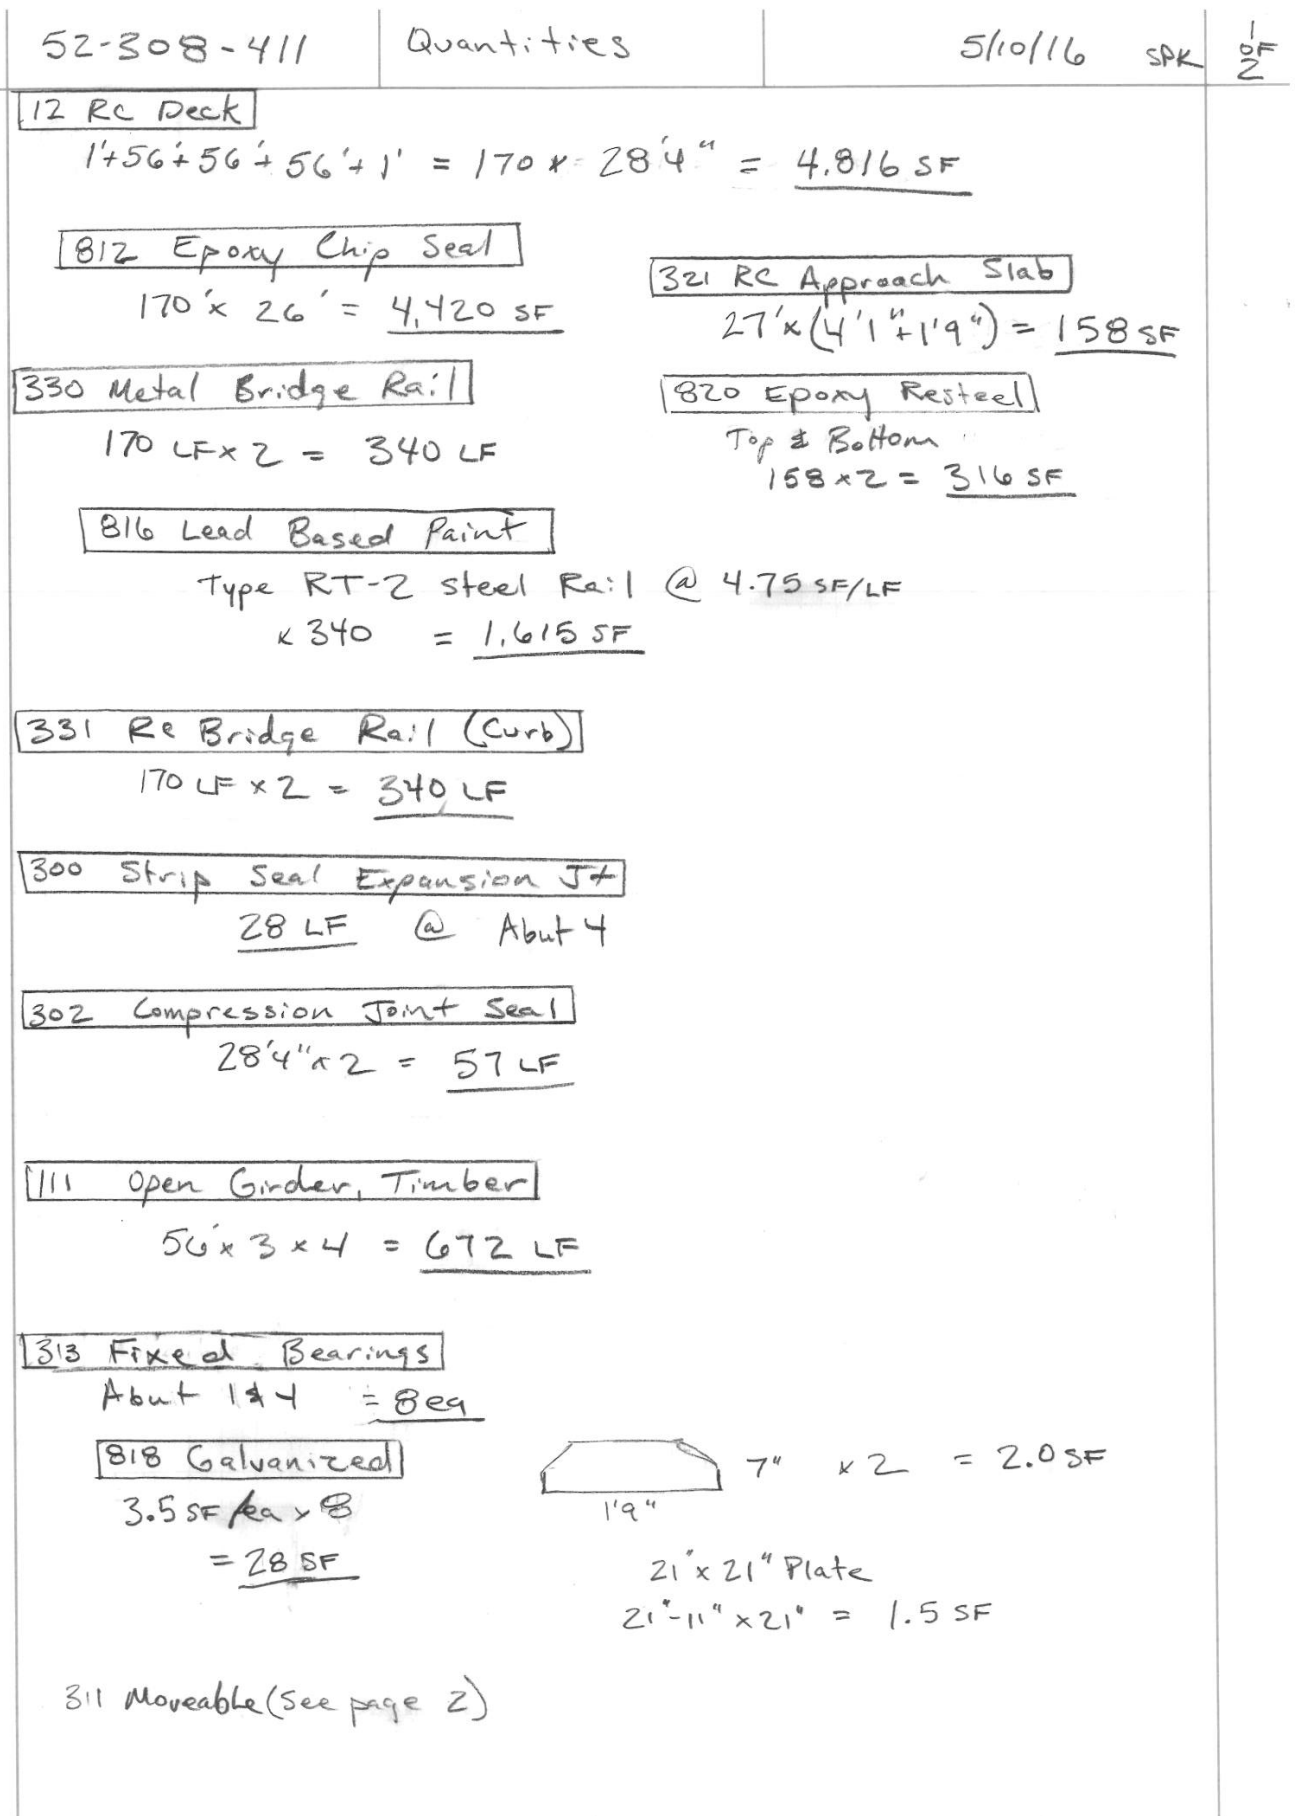 52-308-411 Quantities 5/10/16 SPK 1 OF 2
12 RC Deck
1'+56'+56'+56'+1' = 170 x 28'4" = 4,816 SF
812 Epoxy Chip Seal
170' x 26' = 4,420 SF
321 RC Approach Slab
27'x(4'1"+1'9") = 158 SF
330 Metal Bridge Rail
170 LF x 2 = 340 LF
820 Epoxy Resteel
Top & Bottom
158 x 2 = 316 SF
816 Lead Based Paint
Type RT-2 Steel Rail @ 4.75 SF/LF
x 340 = 1,615 SF
331 Rc Bridge Rail (Curb)
170 LF x 2 = 340 LF
300 Strip Seal Expansion Jt
28 LF @ Abut 4
302 Compression Joint Seal
28'4" x 2 = 57 LF
111 Open Girder, Timber
56' x 3 x 4 = 672 LF
313 Fixed Bearings
Abut 1 & 4 = 8 ea
818 Galvanized
3.5 SF/ea x 8
= 28 SF
7" x 2 = 2.0 SF
1'9"
21" x 21" Plate
21"-11" x 21" = 1.5 SF
311 Moveable (See page 2)